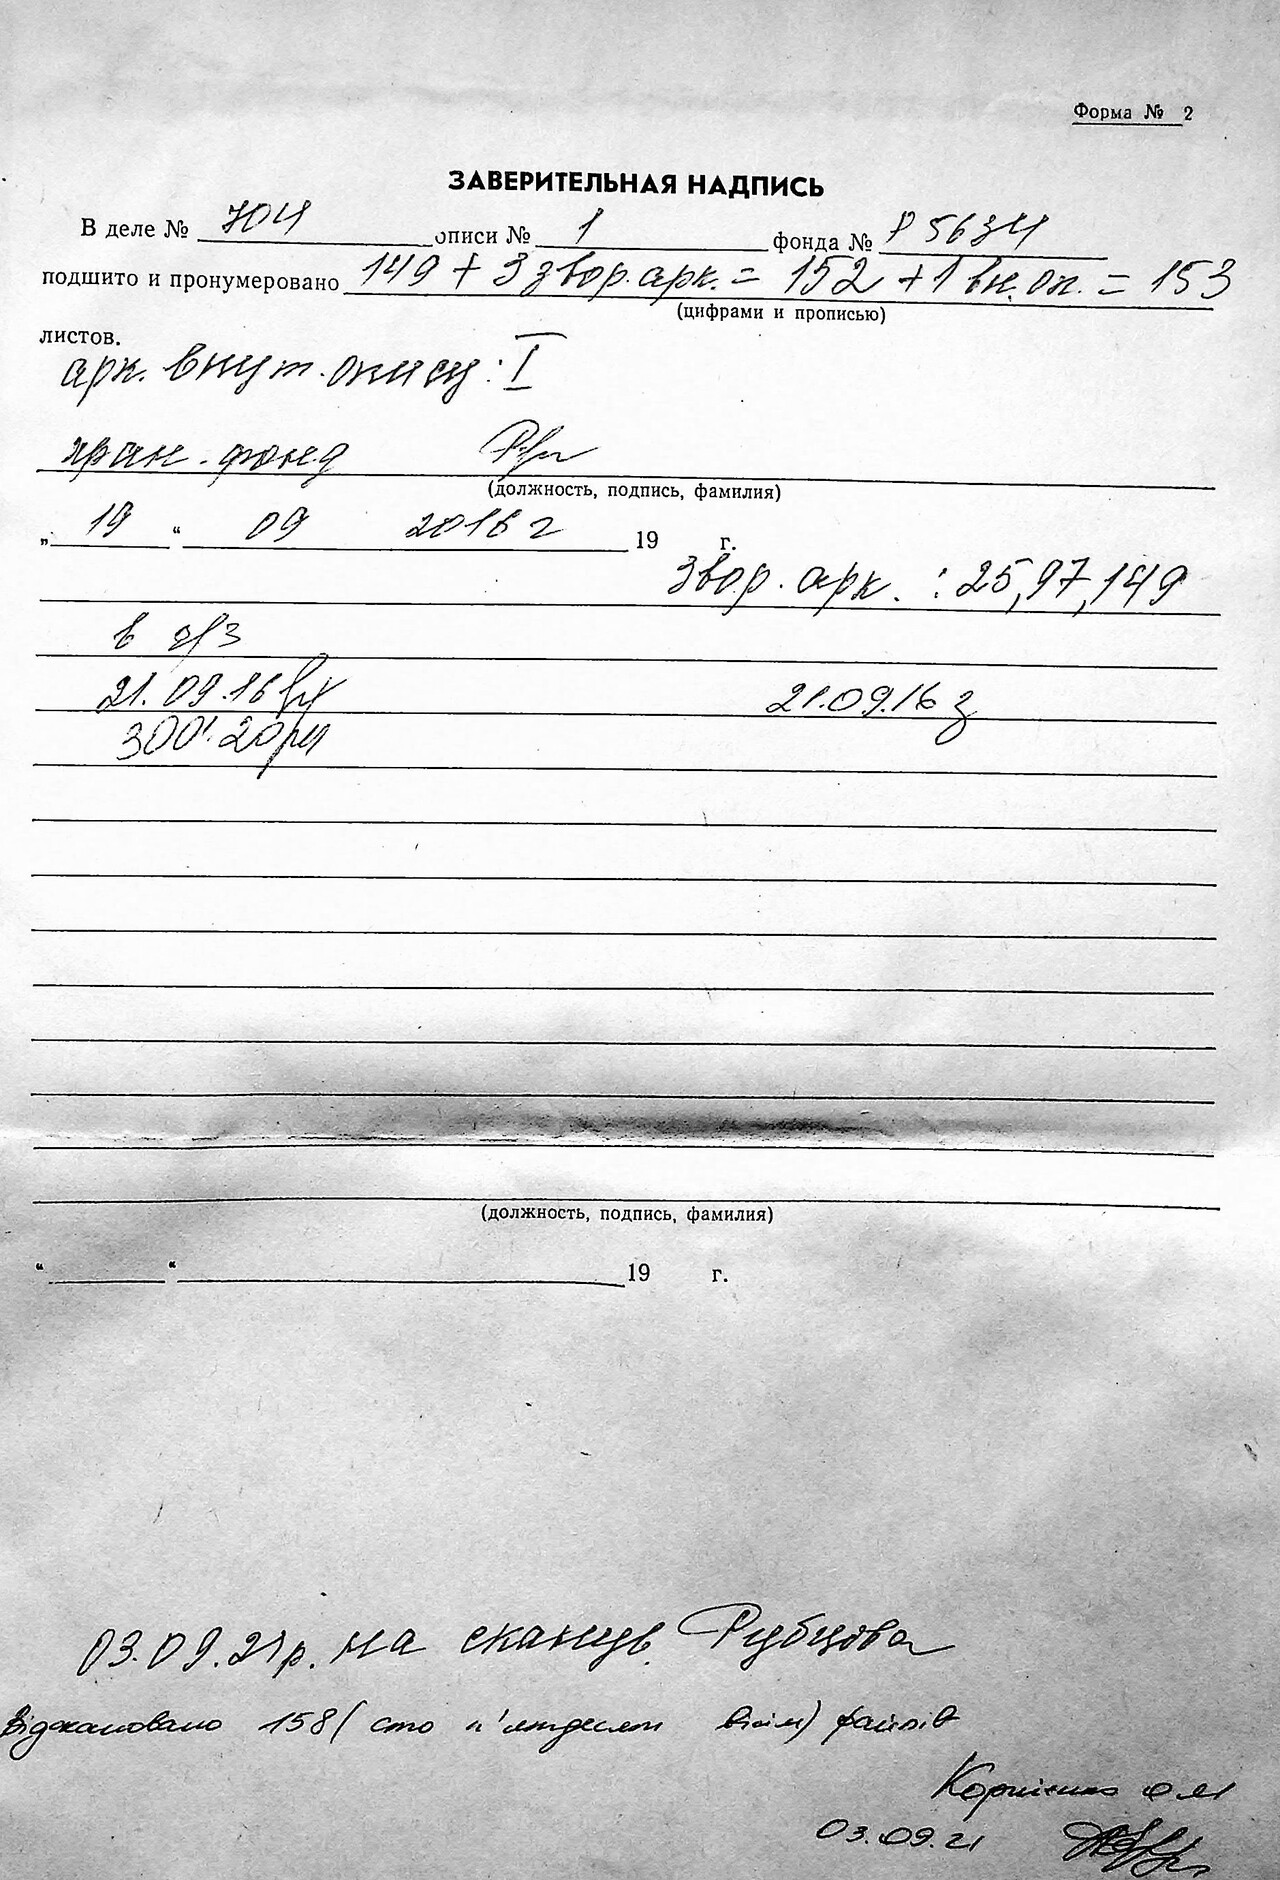 Форма № 2
ЗАВЕРИТЕЛЬНАЯ НАДПИСЬ
В деле № 704 описи № 1 фонда № Р 5634
подшито и пронумеровано 149 + 3 звор. арк. = 152 + 1 вн. оп. = 153
(цифрами и прописью)
листов.
арк. внут. опису: I
хран. фонд
(должность, подпись, фамилия)
„ 19 “ 09 2016 г 19 г.
Звор. арк. : 25, 97, 149
21.09.16 21.09.16
(должность, подпись, фамилия)
“ “ 19 г.
03.09.21 р. на сканув. Рубцова
Відскановано 158 (сто п'ятдесят вісім) файлів
Корнієнко О М
03.09.21